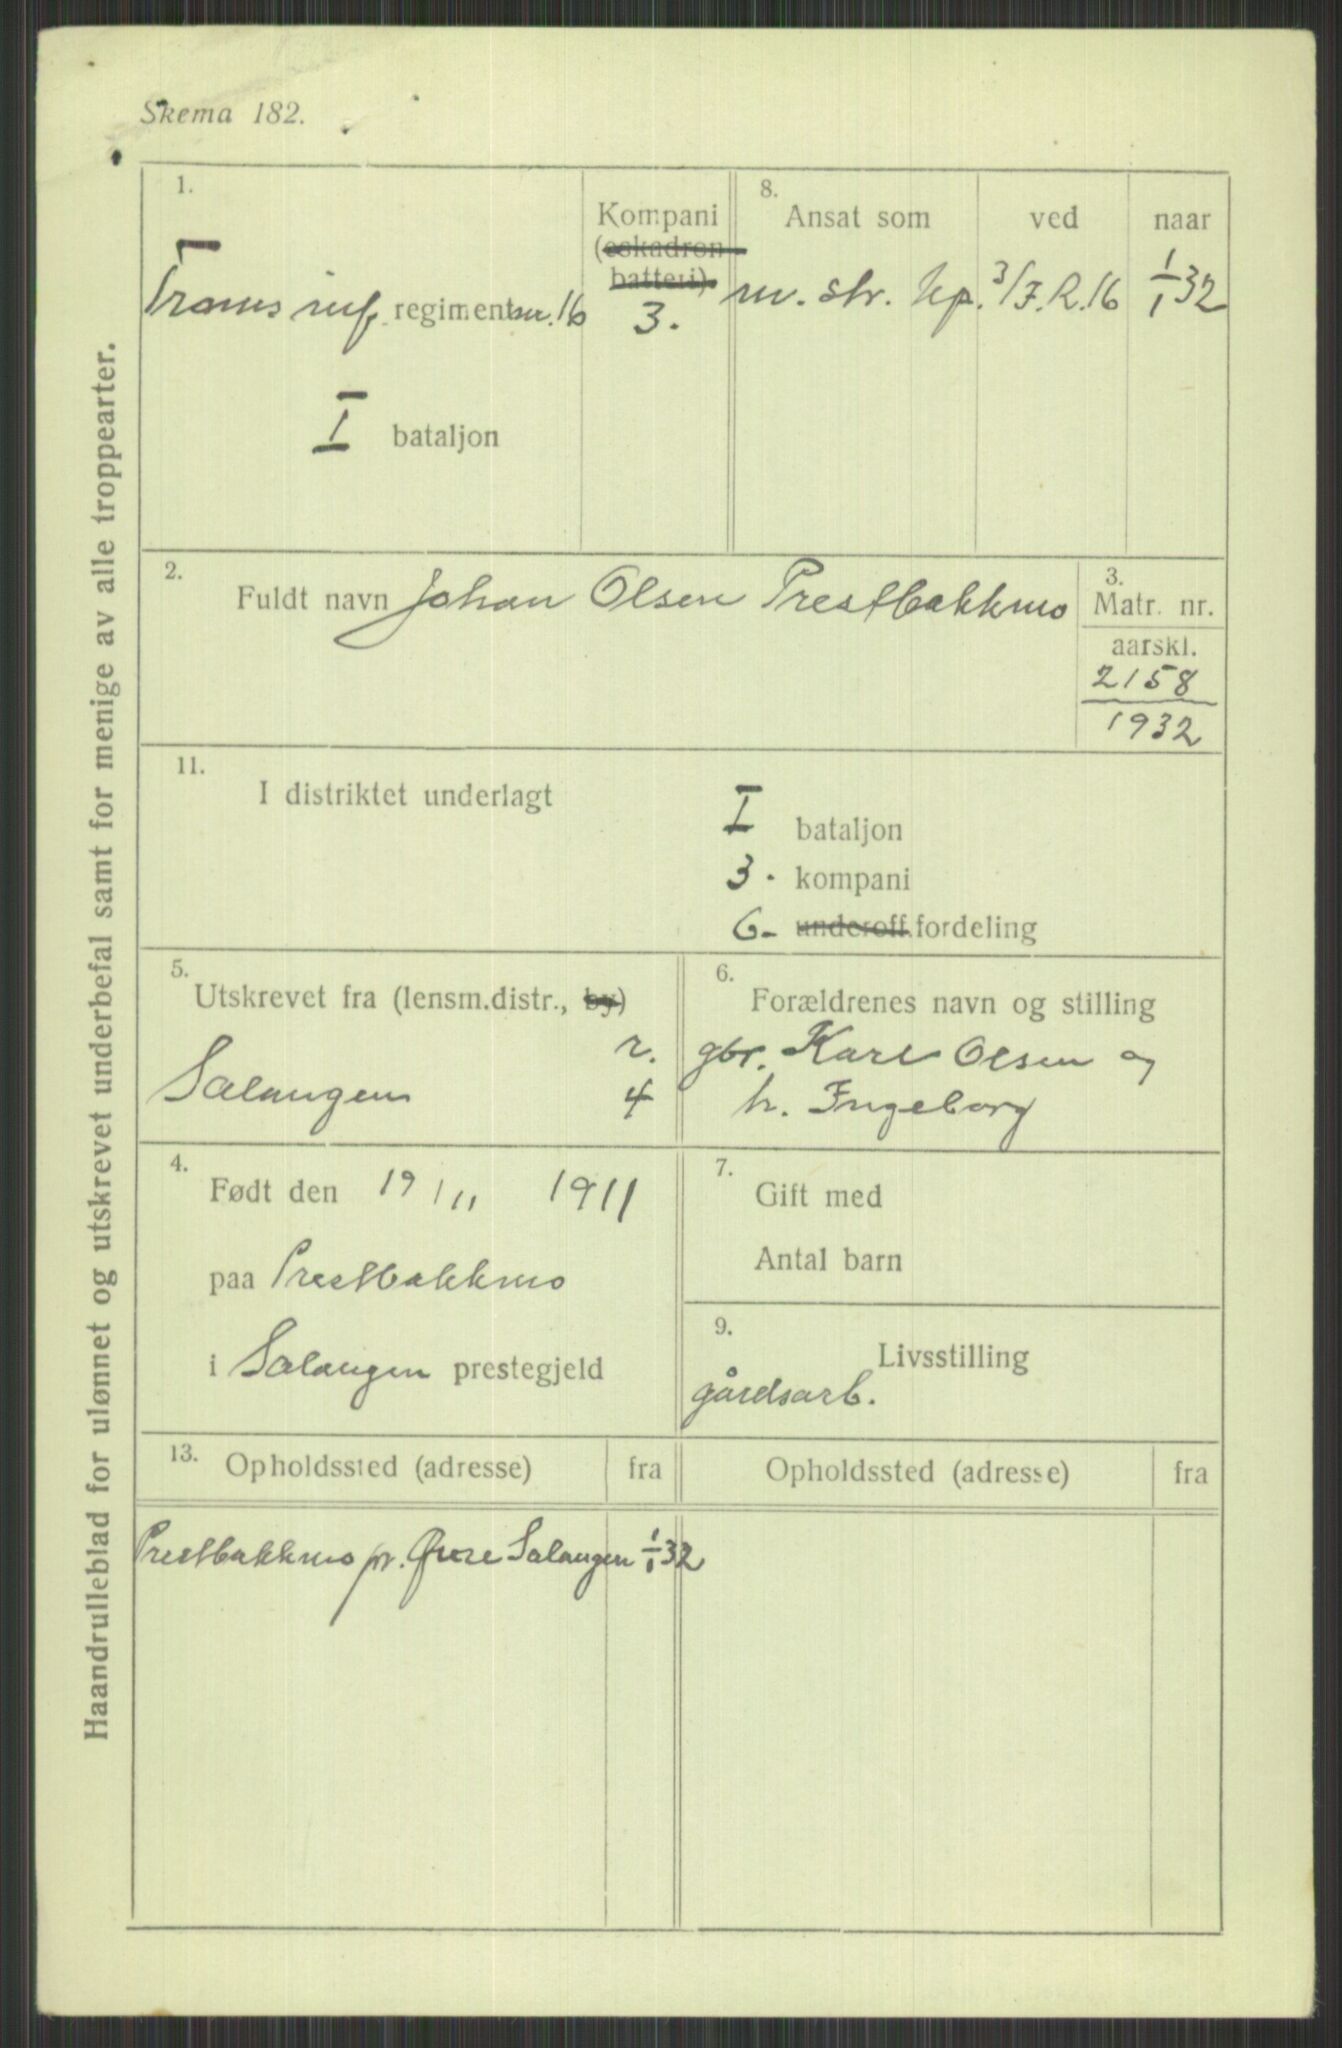 Skema 182.
Haandrulleblad for ulønnet og utskrevet underbefal samt for menige av alle troppearter.
1.
Troms inf. regiment nr. 16
Kompani
(eskadron
batteri).
3.
I bataljon
8.
Ansat som
ved
naar
m. str. kp. 3/I.R.16 1/1 32
2.
Fuldt navn Johan Olsen Prestbakkmo
3.
Matr. nr.
aarskl.
2158
1932
11.
I distriktet underlagt
I bataljon
3. kompani
6- underoff.fordeling
5.
Utskrevet fra (lensm.distr., by)
r.
Salangen 4
6.
Forældrenes navn og stilling
gbr. Karl Olsen og
h. Ingeborg
4.
Født den 19/11 1911
paa Prestbakkmo
i Salangen prestegjeld
7.
Gift med
Antal barn
9.
Livsstilling
gårdsarb.
13.
Opholdssted (adresse)
fra
Opholdssted (adresse)
fra
Prestbakkmo pr. Øvre Salangen 1/1 32